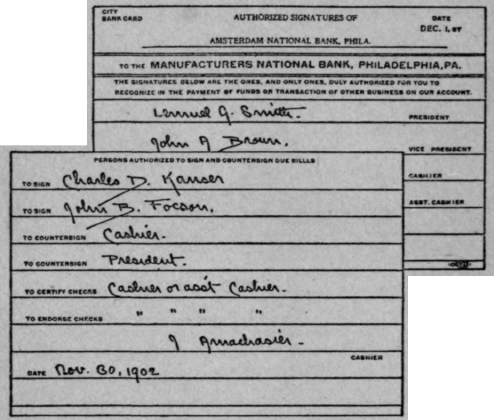 CITY
BANK CARD
AUTHORIZED SIGNATURES OF
DATE
DEC. 1, 07
AMSTERDAM NATIONAL BANK, PHILA.
TO THE MANUFACTURERS NATIONAL BANK, PHILADELPHIA, PA.
THE SIGNATURES BELOW ARE THE ONES, AND ONLY ONES, DULY AUTHORIZED FOR YOU TO
RECOGNIZE IN THE PAYMENT OF FUNDS OR TRANSACTION OF OTHER BUSINESS ON OUR ACCOUNT.
Lemuel G. Smith.
PRESIDENT
John A Brown.
VICE PRESIDENT
CASHIER
ASST. CASHIER
PERSONS AUTHORIZED TO SIGN AND COUNTERSIGN DUE BILLS
TO SIGN Charles D. Kanser
TO SIGN John B. Focson.
TO COUNTERSIGN Cashier.
TO COUNTERSIGN President.
TO CERTIFY CHECKS Cashier or asst Cashier.
TO ENDORSE CHECKS " " " "
J
CASHIER
DATE Nov. 30, 1902